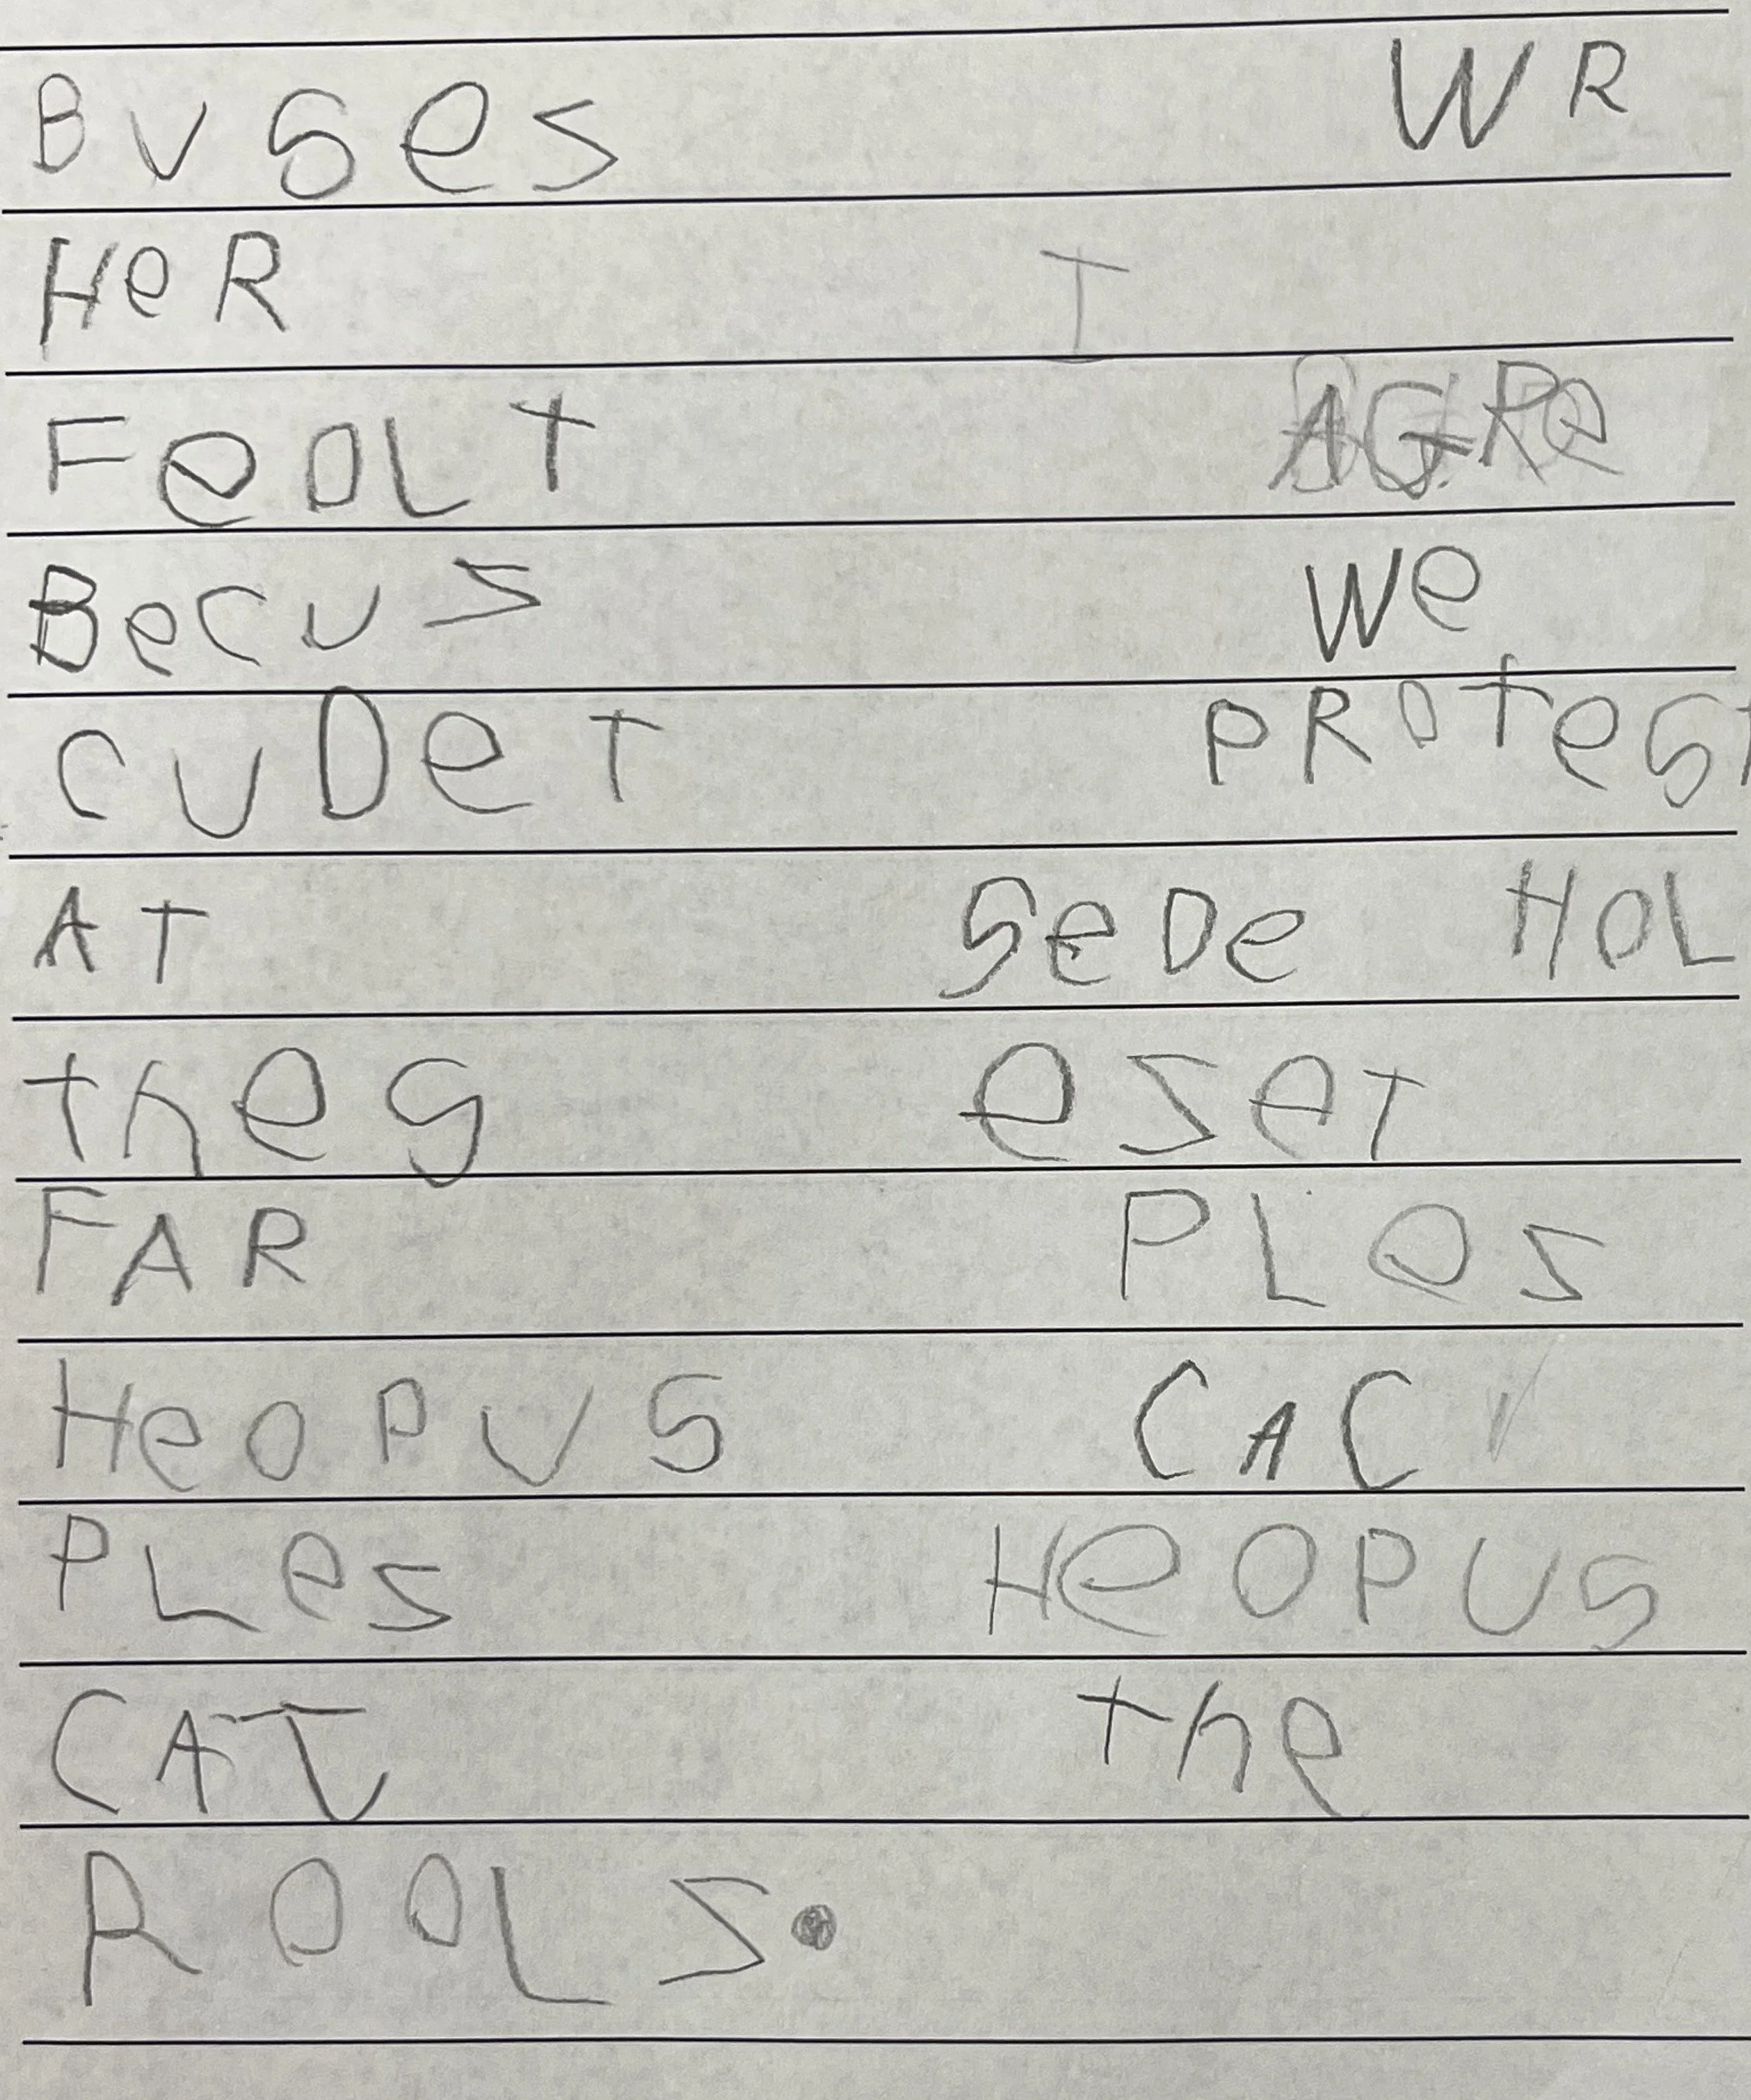 BUSes WR
HeR I
FeOLT AGRe
BecUS We
CUDeT PROtest
AT SeDe HOL
theS eSeT
FAR PLeS
HeOPUS CAC
PLeS HeOPUS
CAT the
ROOLS.